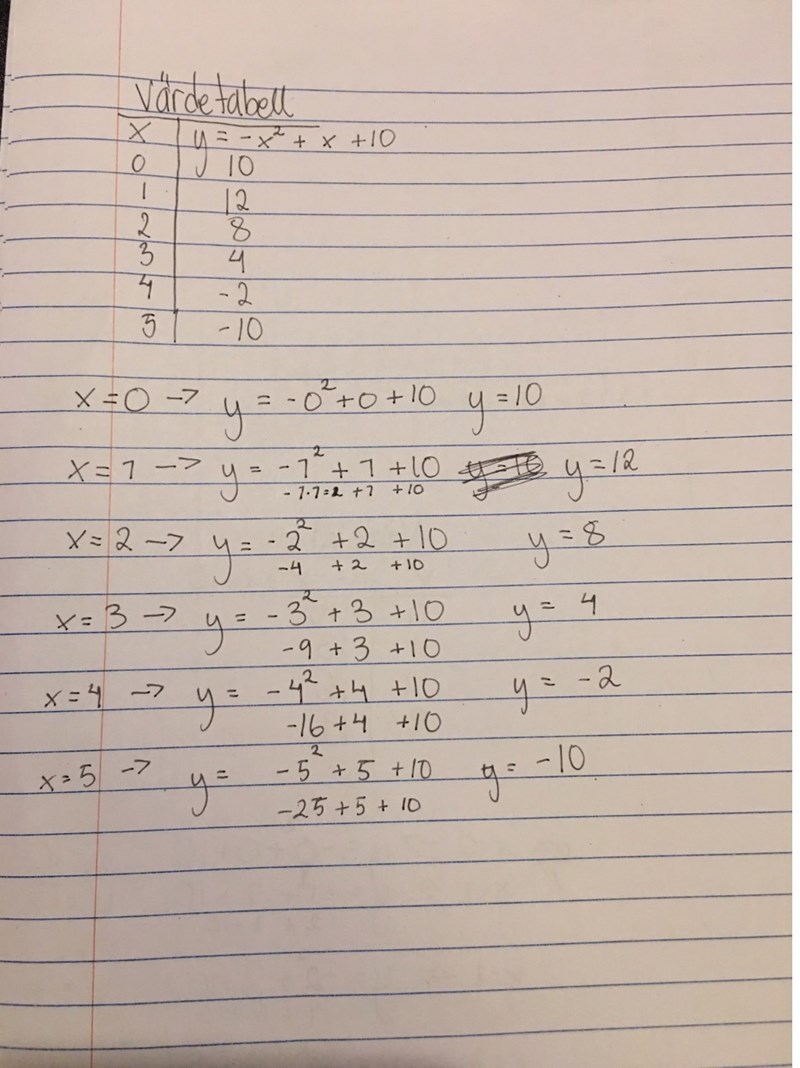 Värdetabell
x y = -x² + x + 10
0 10
1 12
2 8
3 4
4 -2
5 -10
x = 0 -> y = -0² + 0 + 10 y = 10
x = 1 -> y = -1² + 1 + 10 y = 12
-1·1=2 +1 +10
x = 2 -> y = -2² + 2 + 10 y = 8
-4 + 2 + 10
x = 3 -> y = -3² + 3 + 10 y = 4
-9 + 3 + 10
x = 4 -> y = -4² + 4 + 10 y = -2
-16 + 4 + 10
x = 5 -> y = -5² + 5 + 10 y = -10
-25 + 5 + 10